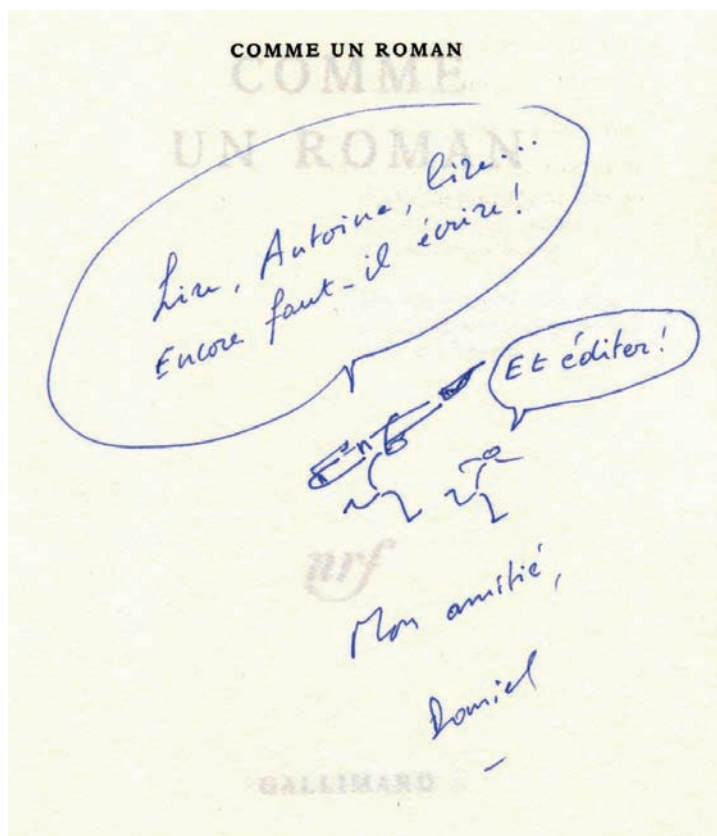 COMME UN ROMAN
COMME
UN ROMAN
Lire, Antoine, lire...
Encore faut-il écrire!
Et éditer!
nrf
Mon amitié,
Daniel
GALLIMARD